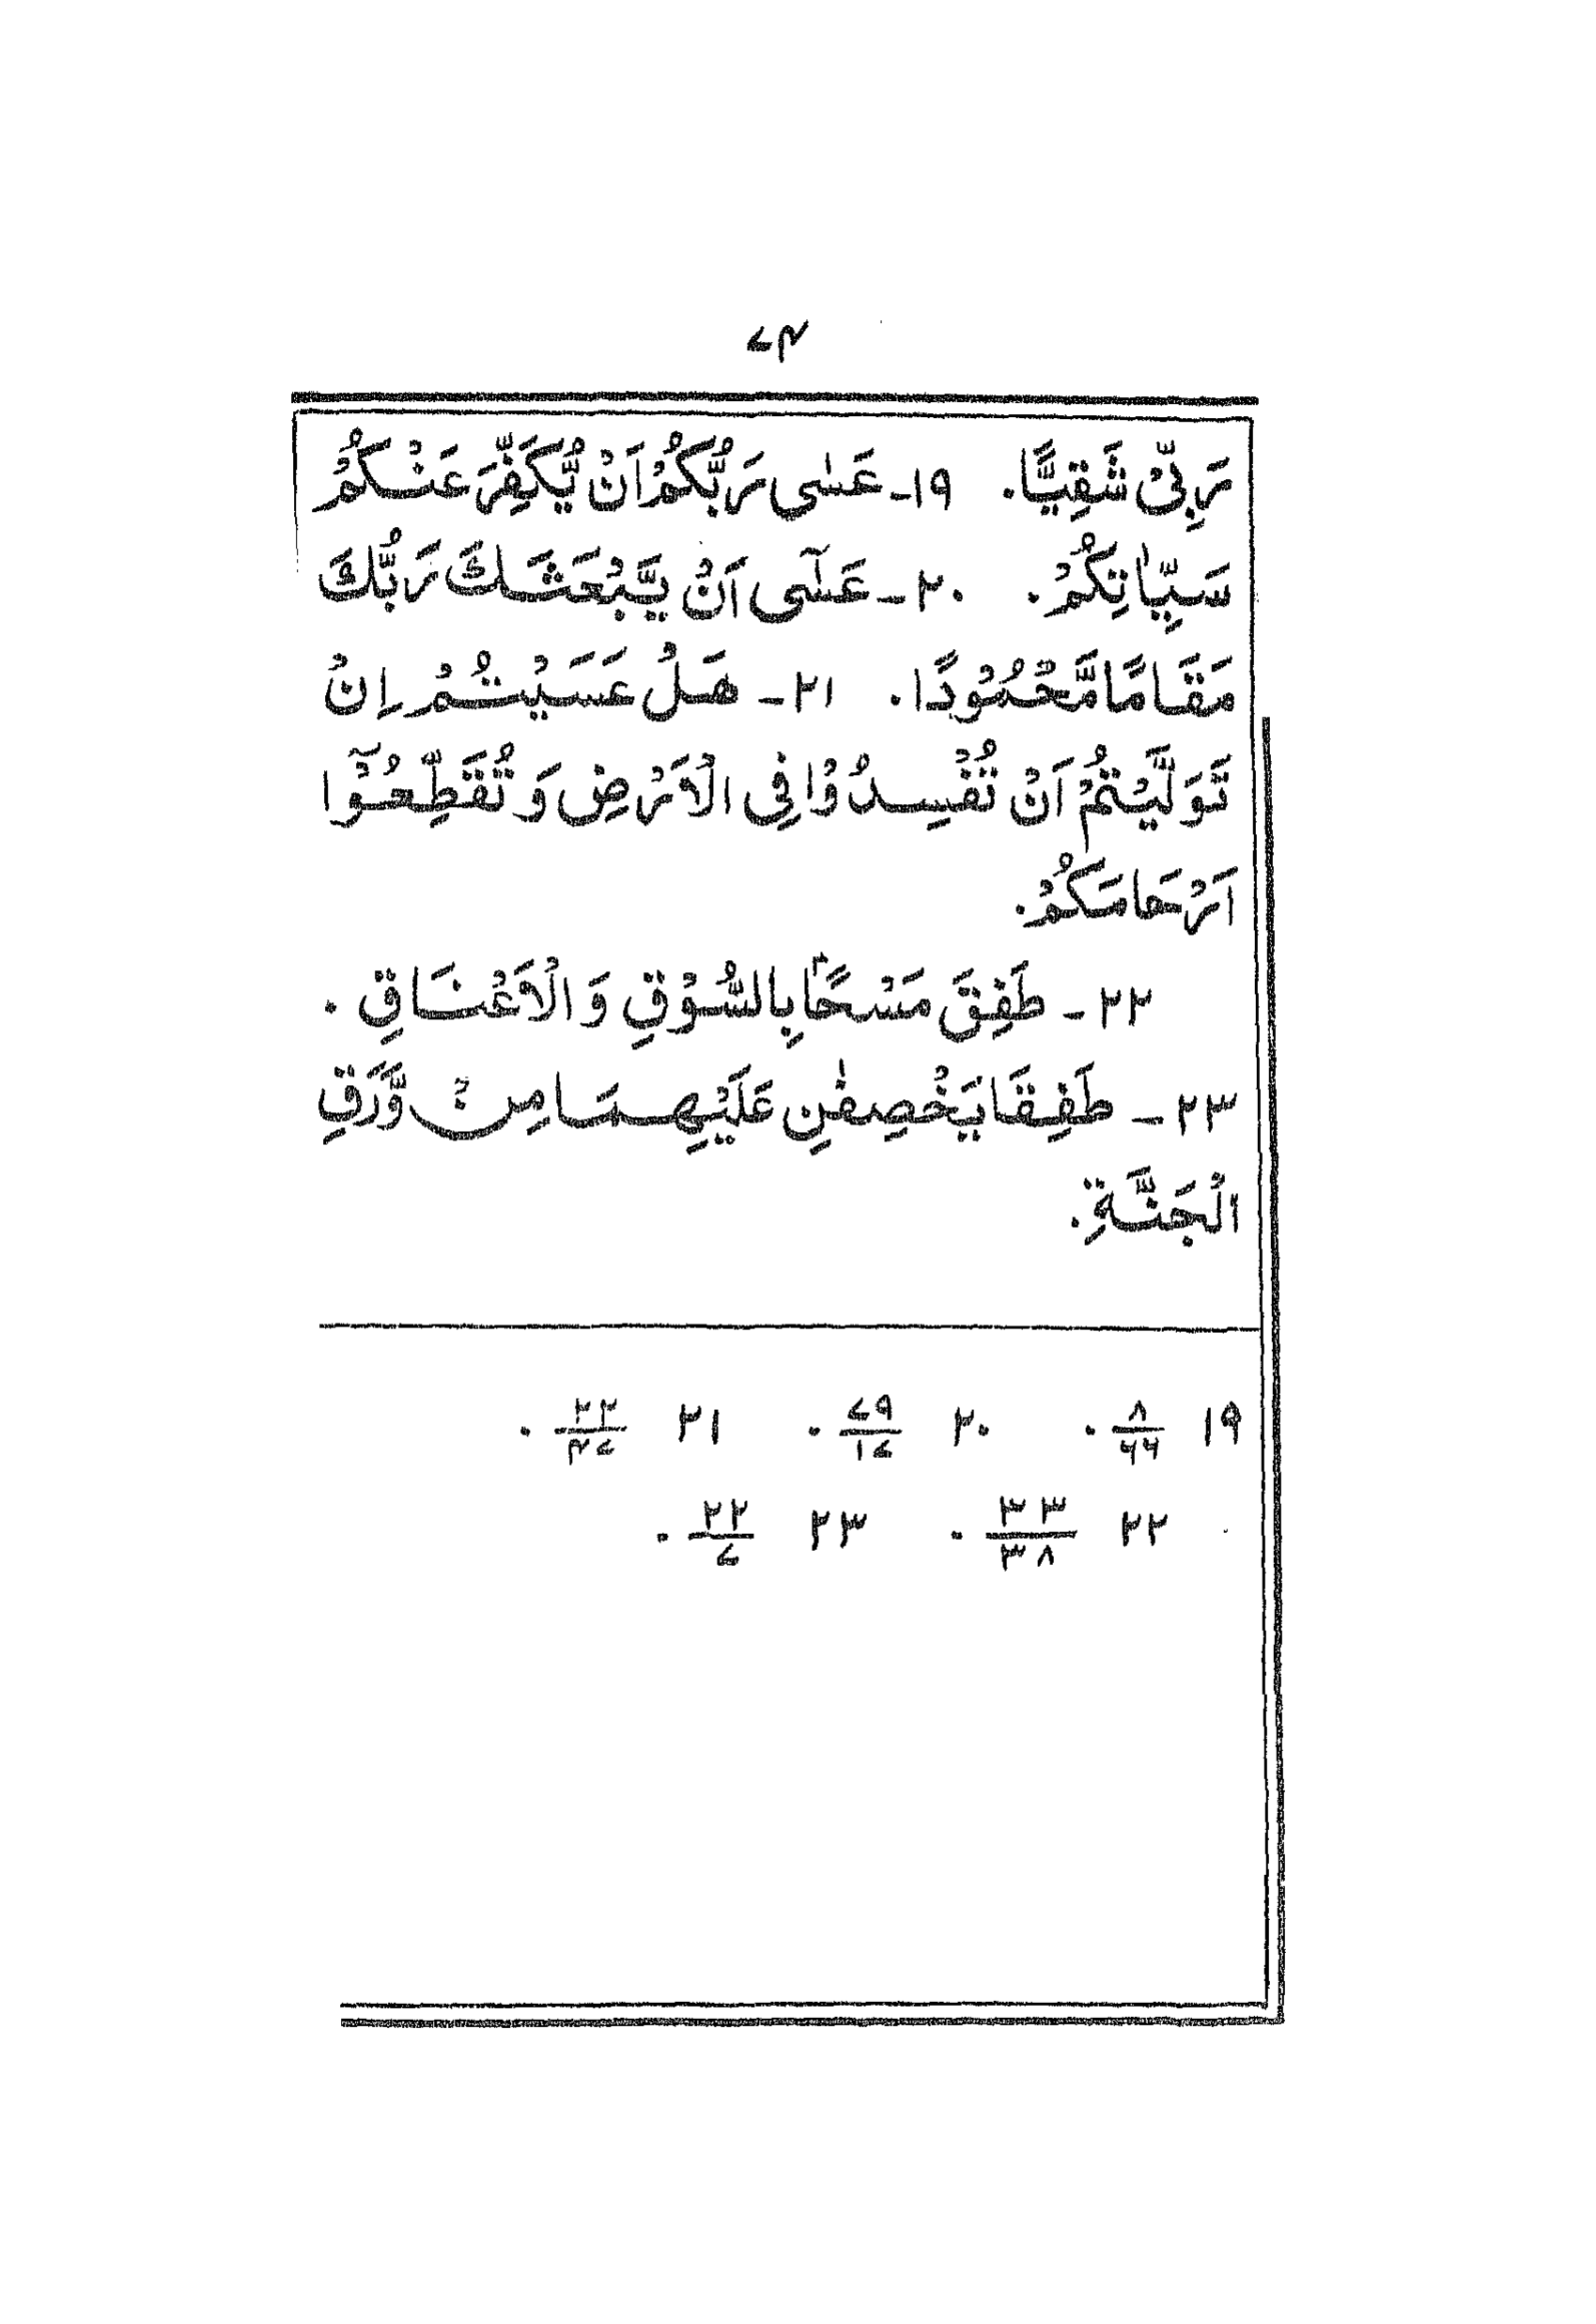 ۷۴
رَبِّیْ شَقِیًّا. ۱۹- عَسٰی رَبُّکُمْ اَنْ یُّکَفِّرَ عَنْکُمْ
سَیِّاٰتِکُمْ. ۲۰- عَسٰۤی اَنْ یَّبْعَثَکَ رَبُّکَ
مَقَامًا مَّحْمُوْدًا. ۲۱- هَلْ عَسَیْتُمْ اِنْ
تَوَلَّیْتُمْ اَنْ تُفْسِدُوْا فِی الْاَرْضِ وَ تُقَطِّعُوْۤا
اَرْحَامَکُمْ.
۲۲- طَفِقَ مَسْحًۢا بِالسُّوْقِ وَ الْاَعْنَاقِ.
۲۳- طَفِقَا یَخْصِفٰنِ عَلَیْهِمَا مِنْ وَّرَقِ
الْجَنَّةِ.
۱۹ ۸/۶۶. ۲۰ ۷۹/۱۷. ۲۱ ۲۲/۴۷.
۲۲ ۳۳/۳۸. ۲۳ ۲۲/۷.